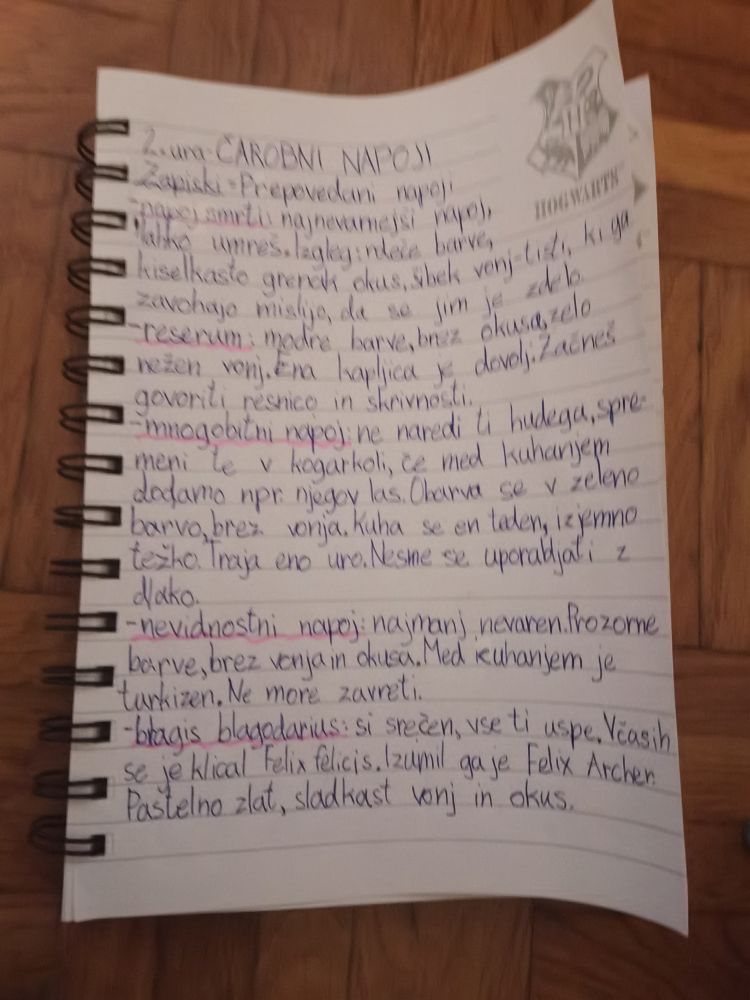 2. ura: ČAROBNI NAPOJI
Zapiski = Prepovedani napoji
-napoj smrti: najnevarnejši napoj,
lahko umreš. Izgleg: rdeče barve,
kiselkasto grenak okus, šibek vonj-tisti, ki ga
zavohajo mislijo, da se jim je zdelo.
-reserum: modre barve, brez okusa, zelo
nežen vonj. Ena kapljica je dovolj. Začneš
govoriti resnico in skrivnosti.
-mnogobitni napoj: ne naredi ti hudega, spre-
meni te v kogarkoli, če med kuhanjem
dodamo npr. njegov las. Obarva se v zeleno
barvo, brez vonja. Kuha se en teden, izjemno
težko. Traja eno uro. Nesme se uporabljati z
dlako.
-nevidnostni napoj: najmanj nevaren. Prozorne
barve, brez vonja in okusa. Med kuhanjem je
turkizen. Ne more zavreti.
-blagis blagodarius: si srečen, vse ti uspe. Včasih
se je klical Felix felicis. Izumil ga je Felix Archer.
Pastelno zlat, sladkast vonj in okus.
HOGWARTS